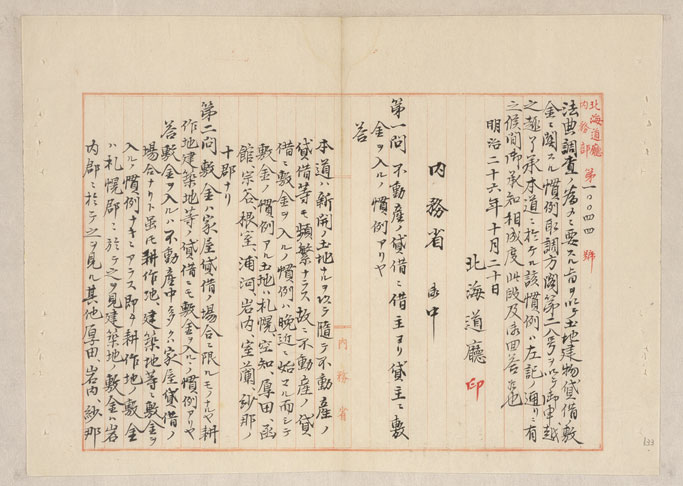 北海道廳
内務部 第一〇〇四四號
法典調査ノ為メニ要スル旨ヲ以テ土地建物貸借敷
金ニ関スル慣例取調方閣第二八号ヲ以テ御申越
之趣了承本道ニ於テル該慣例ハ左記ノ通リニ有
之候間御承知相成度此段及回答候也
明治二十六年十月二十日
北海道廳 印
内務省 御中
第一問 不動産ノ貸借ニ借主ヨリ貸主ニ敷
金ヲ入ルヽノ慣例アリヤ
答
本道ハ新開ノ土地ナルヲ以テ随テ不動産ノ
貸借等モ頻繁ナラス故ニ不動産ノ貸
借ニ敷金ヲ入ルヽノ慣例ハ晩近ニ始マル而シテ
敷金ノ慣例アル土地ハ札幌空知厚田函
館宗谷根室、浦河岩内室蘭紗那ノ
十郡ナリ
第二問 敷金ハ家屋貸借ノ場合ニ限ルモノナルヤ耕
作地建築地等ノ貸借ニモ敷金ヲ入ルヽノ慣例アリヤ
答 敷金ヲ入ルヽハ不動産中多クハ家屋貸借ノ
場合ナリト雖モ耕作地、建築地等ニ敷金ヲ
入ルヽノ慣例ナキニアラス即チ耕作地ノ敷金
ハ札幌郡ニ於テ之ヲ見建築地ノ敷金ハ岩
内郡ニ於テ之ヲ見ル其他厚田、岩内紗那
内務省
133